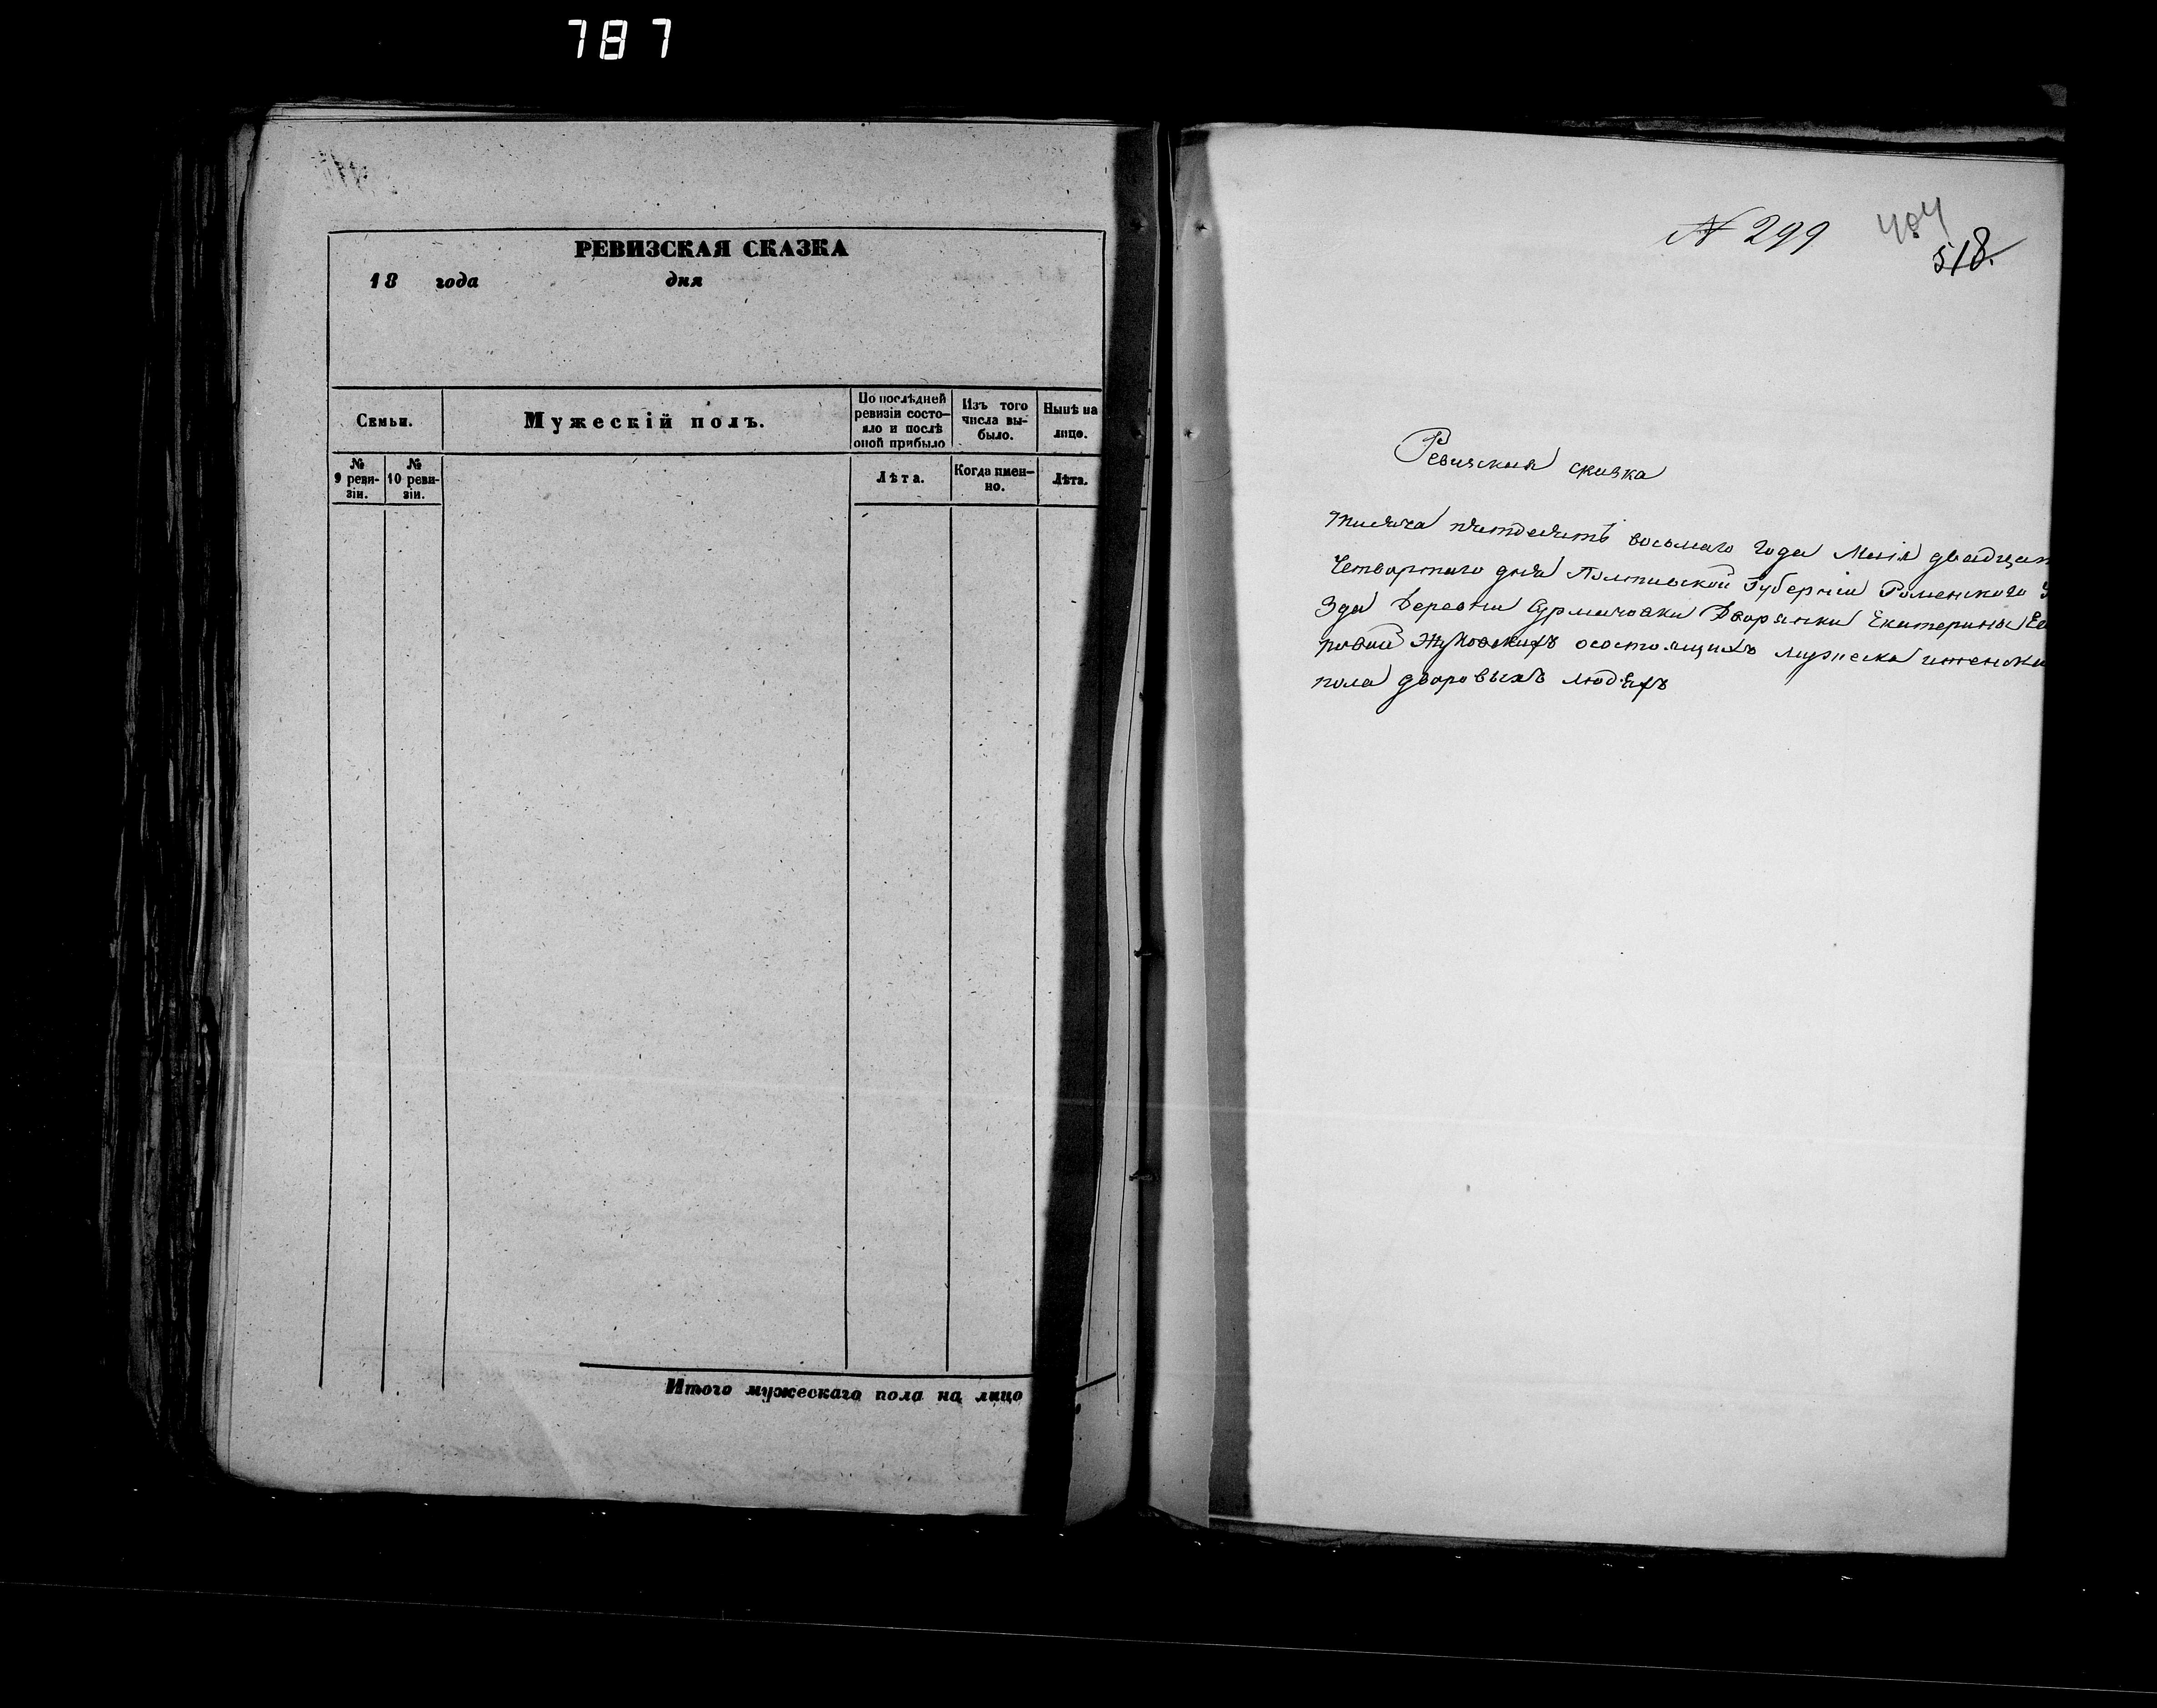 787
РЕВИЗСКАЯ СКАЗКА
18 года дня
Семьи.
Мужескій полъ.
По послѣдней
ревизіи состо-
яло и послѣ
оной прибыло
Изъ того
числа вы-
было.
Нынѣ на
лицо.
№
9 реви-
зіи.
№
10 реви-
зіи.
Лѣта.
Когда имен-
но.
Лѣта.
Итого мужескаго пола на лицо
№ 299
518.
Ревизская сказка
тисяча пятдесятъ восьмаго года Маія двадцат
Четвертаго дня Полтавской Губерніи Роменского
Зда Деревни Дворянки Екатерины
Жуковскихъ осостоящихъ мужеска иженска
пола дворовыхъ людяхъ